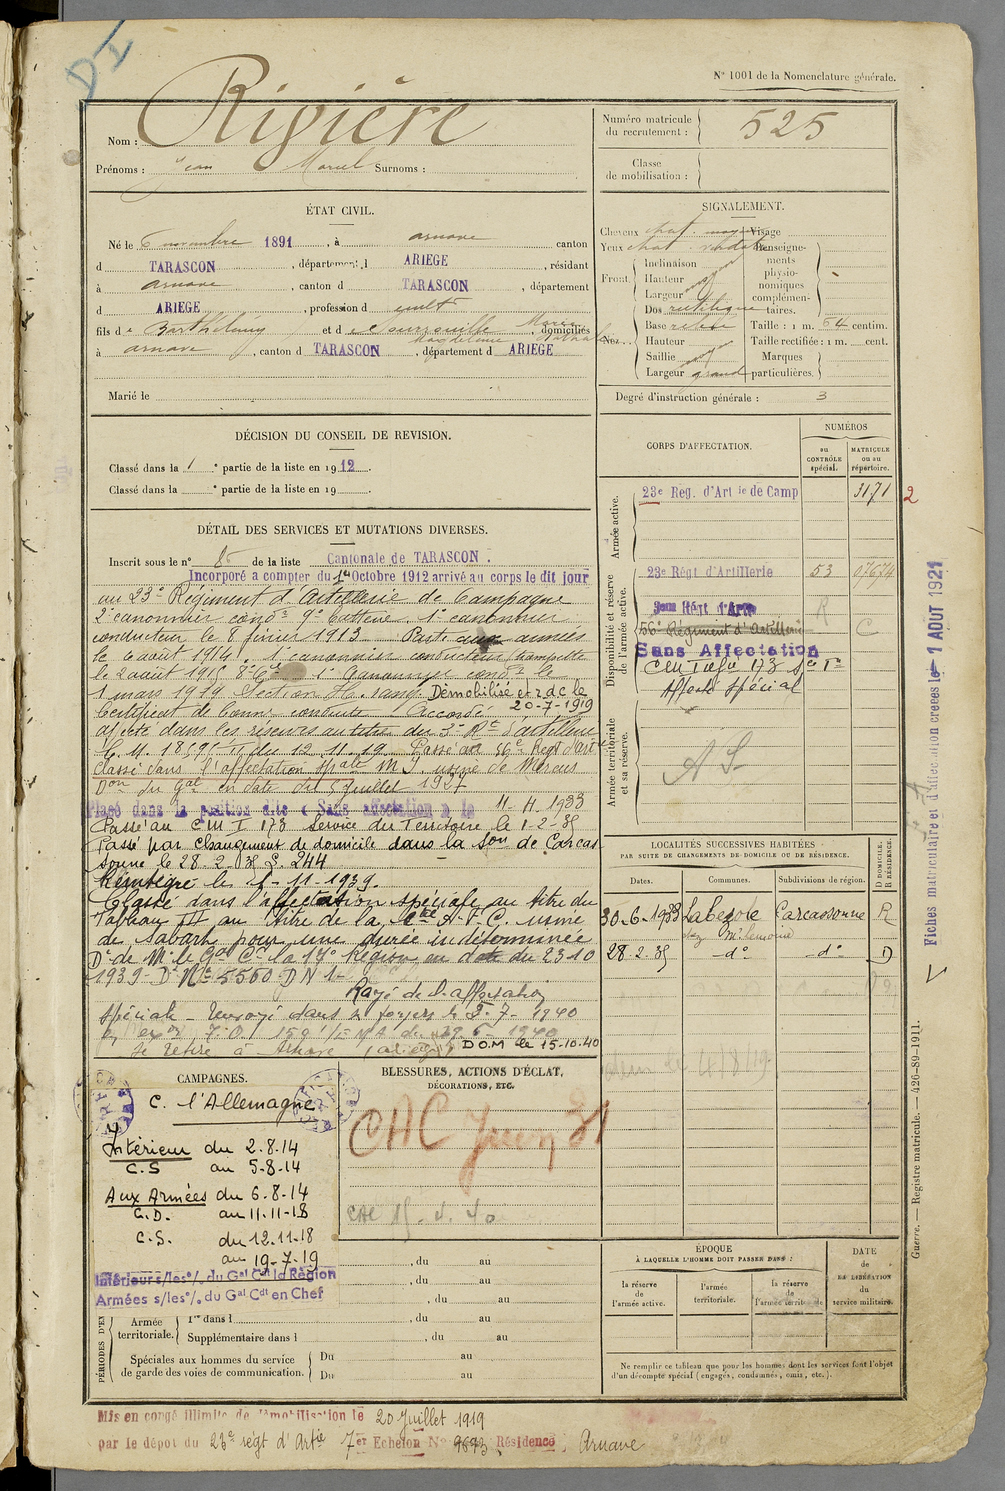 D I
N° 1001 de la Nomenclature générale.
Nom : Rivière
Prénoms : Jean Marcel Surnoms :
ÉTAT CIVIL.
Né le 6 novembre 1891, à Arnave canton
d TARASCON, département d ARIEGE, résidant
à Arnave, canton d TARASCON, département
d ARIEGE, profession d cultr
fils de Barthélemy et d domiciliés
à Arnave, canton d TARASCON, département d ARIEGE
Marié le
DÉCISION DU CONSEIL DE REVISION.
Classé dans la 1 e partie de la liste en 1912.
Classé dans la e partie de la liste en 19
DÉTAIL DES SERVICES ET MUTATIONS DIVERSES.
Inscrit sous le n° 8 de la liste Cantonale de TARASCON.
Incorporé a compter du 1er Octobre 1912 arrivé au corps le dit jour
au 23e Régiment d'Artillerie de Campagne
2e canonnier condr 9e batterie. 1er canonnier
conducteur le 8 février 1913 Parti aux armées
le 6 août 1914. 1er canonnier conducteur trompette
le 2 août 1915 1er Canonnier condr le
1 mars 1919 Section Démobilisé et r.d.c le
20-7-1919
Certificat de bonne conduite Accordé
affecté dans les réserves au titre du 3e Rt d'artillerie
C.M. 18595 du 12.11.19 Passé au 56e Regt d'art
Classé dans l'affectation spale M.I. usine de Mercus
Don du Gal en date du 5 juillet 1927
Placé dans la position dite « Sans affectation » le 11-4-1933
Passé au C M I 173 Service du Territoire le 1-2-35
Passé par changement de domicile dans la Son de Carcas
sonne le 28.2.35 S. 244
Réintégré le 1-11-1939.
Classé dans l'affectation spéciale au titre du
Tableau III au titre de la Cie A.F.C. usine
de Sabart pour une durée indéterminée
Dn de Mr le Gal Ct la 17e Région en date du 23 10
1939 - Dn N° 5560 D N 1-
Rayé de l'affectation
spéciale - Renvoyé dans ses foyers le 5-7-1940
Se retire à Arnave (ariège) D.O.M le 15-10-40
CAMPAGNES.
C. l'Allemagne
Intérieur du 2.8.14
C.S au 5-8-14
Aux Armées du 6-8-14
C.D. au 11-11-18
C.S. du 12.11.18
au 19-7-19
Intérieur s/les%. du Gal Cdt la Région
Armées s/les%. du Gal Cdt en Chef
BLESSURES, ACTIONS D'ÉCLAT,
DÉCORATIONS, ETC.
CAC Juin 31
CAC 15.4.40
, du au
, du au
, du au
PÉRIODES D'EX
Armée territoriale. 1re dans l , du au
Supplémentaire dans l , du au
Spéciales aux hommes du service
de garde des voies de communication.
Du au
Du au
Numéro matricule
du recrutement : 525
Classe
de mobilisation :
SIGNALEMENT.
Cheveux chat. moy Visage
Yeux chat. verdâtre
Front
Inclinaison moy
Hauteur
Largeur moy
Nez
Dos rectiligne
Base relevée
Hauteur
Saillie moy
Largeur grand
Renseigne-
ments
physio-
nomiques
complémen-
taires.
Taille : 1 m. 64 centim.
Taille rectifiée : 1 m. cent.
Marques
particulières.
Degré d'instruction générale : 3
CORPS D'AFFECTATION.
NUMÉROS
au CONTRÔLE spécial.
MATRICULE ou au répertoire.
Armée active.
23e Reg. d'Art ie de Camp 3171 2
Disponibilité et réserve
de l'armée active.
23e Régt d'Artillerie 53 07674
R
56e Régiment d'Artillerie C
Sans Affectation
Affecté spécial
Armée territoriale
et sa réserve.
A S
LOCALITÉS SUCCESSIVES HABITÉES
PAR SUITE DE CHANGEMENTS DE DOMICILE OU DE RÉSIDENCE.
Dates. Communes. Subdivisions de région. D DOMICILE. R RÉSIDENCE.
30-6-1933 Carcassonne R
28.2.35 d° d° D
ÉPOQUE
À LAQUELLE L'HOMME DOIT PASSER DANS :
la réserve de l'armée active.
l'armée territoriale.
la réserve de l'armée territoriale
DATE
de
LA LIBÉRATION
du
service militaire.
Ne remplir ce tableau que pour les hommes dont les services font l'objet
d'un décompte spécial (engagés, condamnés, omis, etc.).
Fiches matriculaire et d'affectation créées le 1 AOUT 1921
Guerre. — Registre matricule. — 426-89-1911.
Mis en congé illimité de démobilisation le 20 Juillet 1919
par le dépot du 23e régt d'Artie 7er Echelon N° 9693 Résidence, Arnave